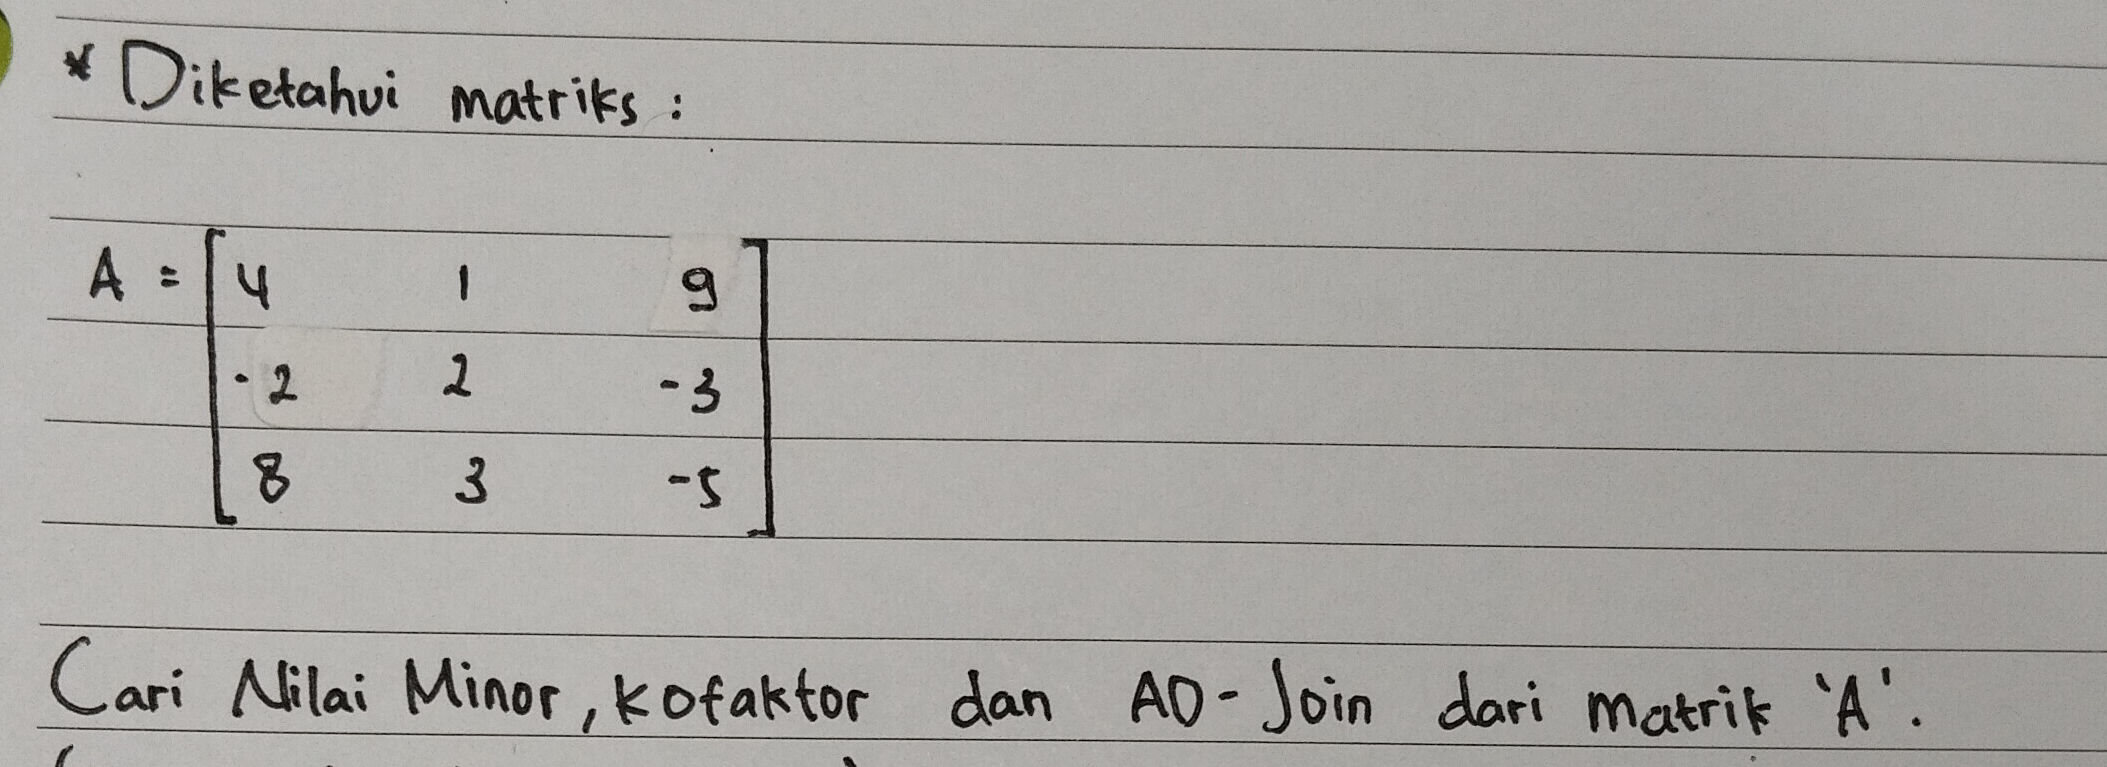 * Diketahui matriks :
A = [ 4 1 9
-2 2 -3
8 3 -5 ]
Cari Nilai Minor, Kofaktor dan AD-Join dari Matrik 'A'.